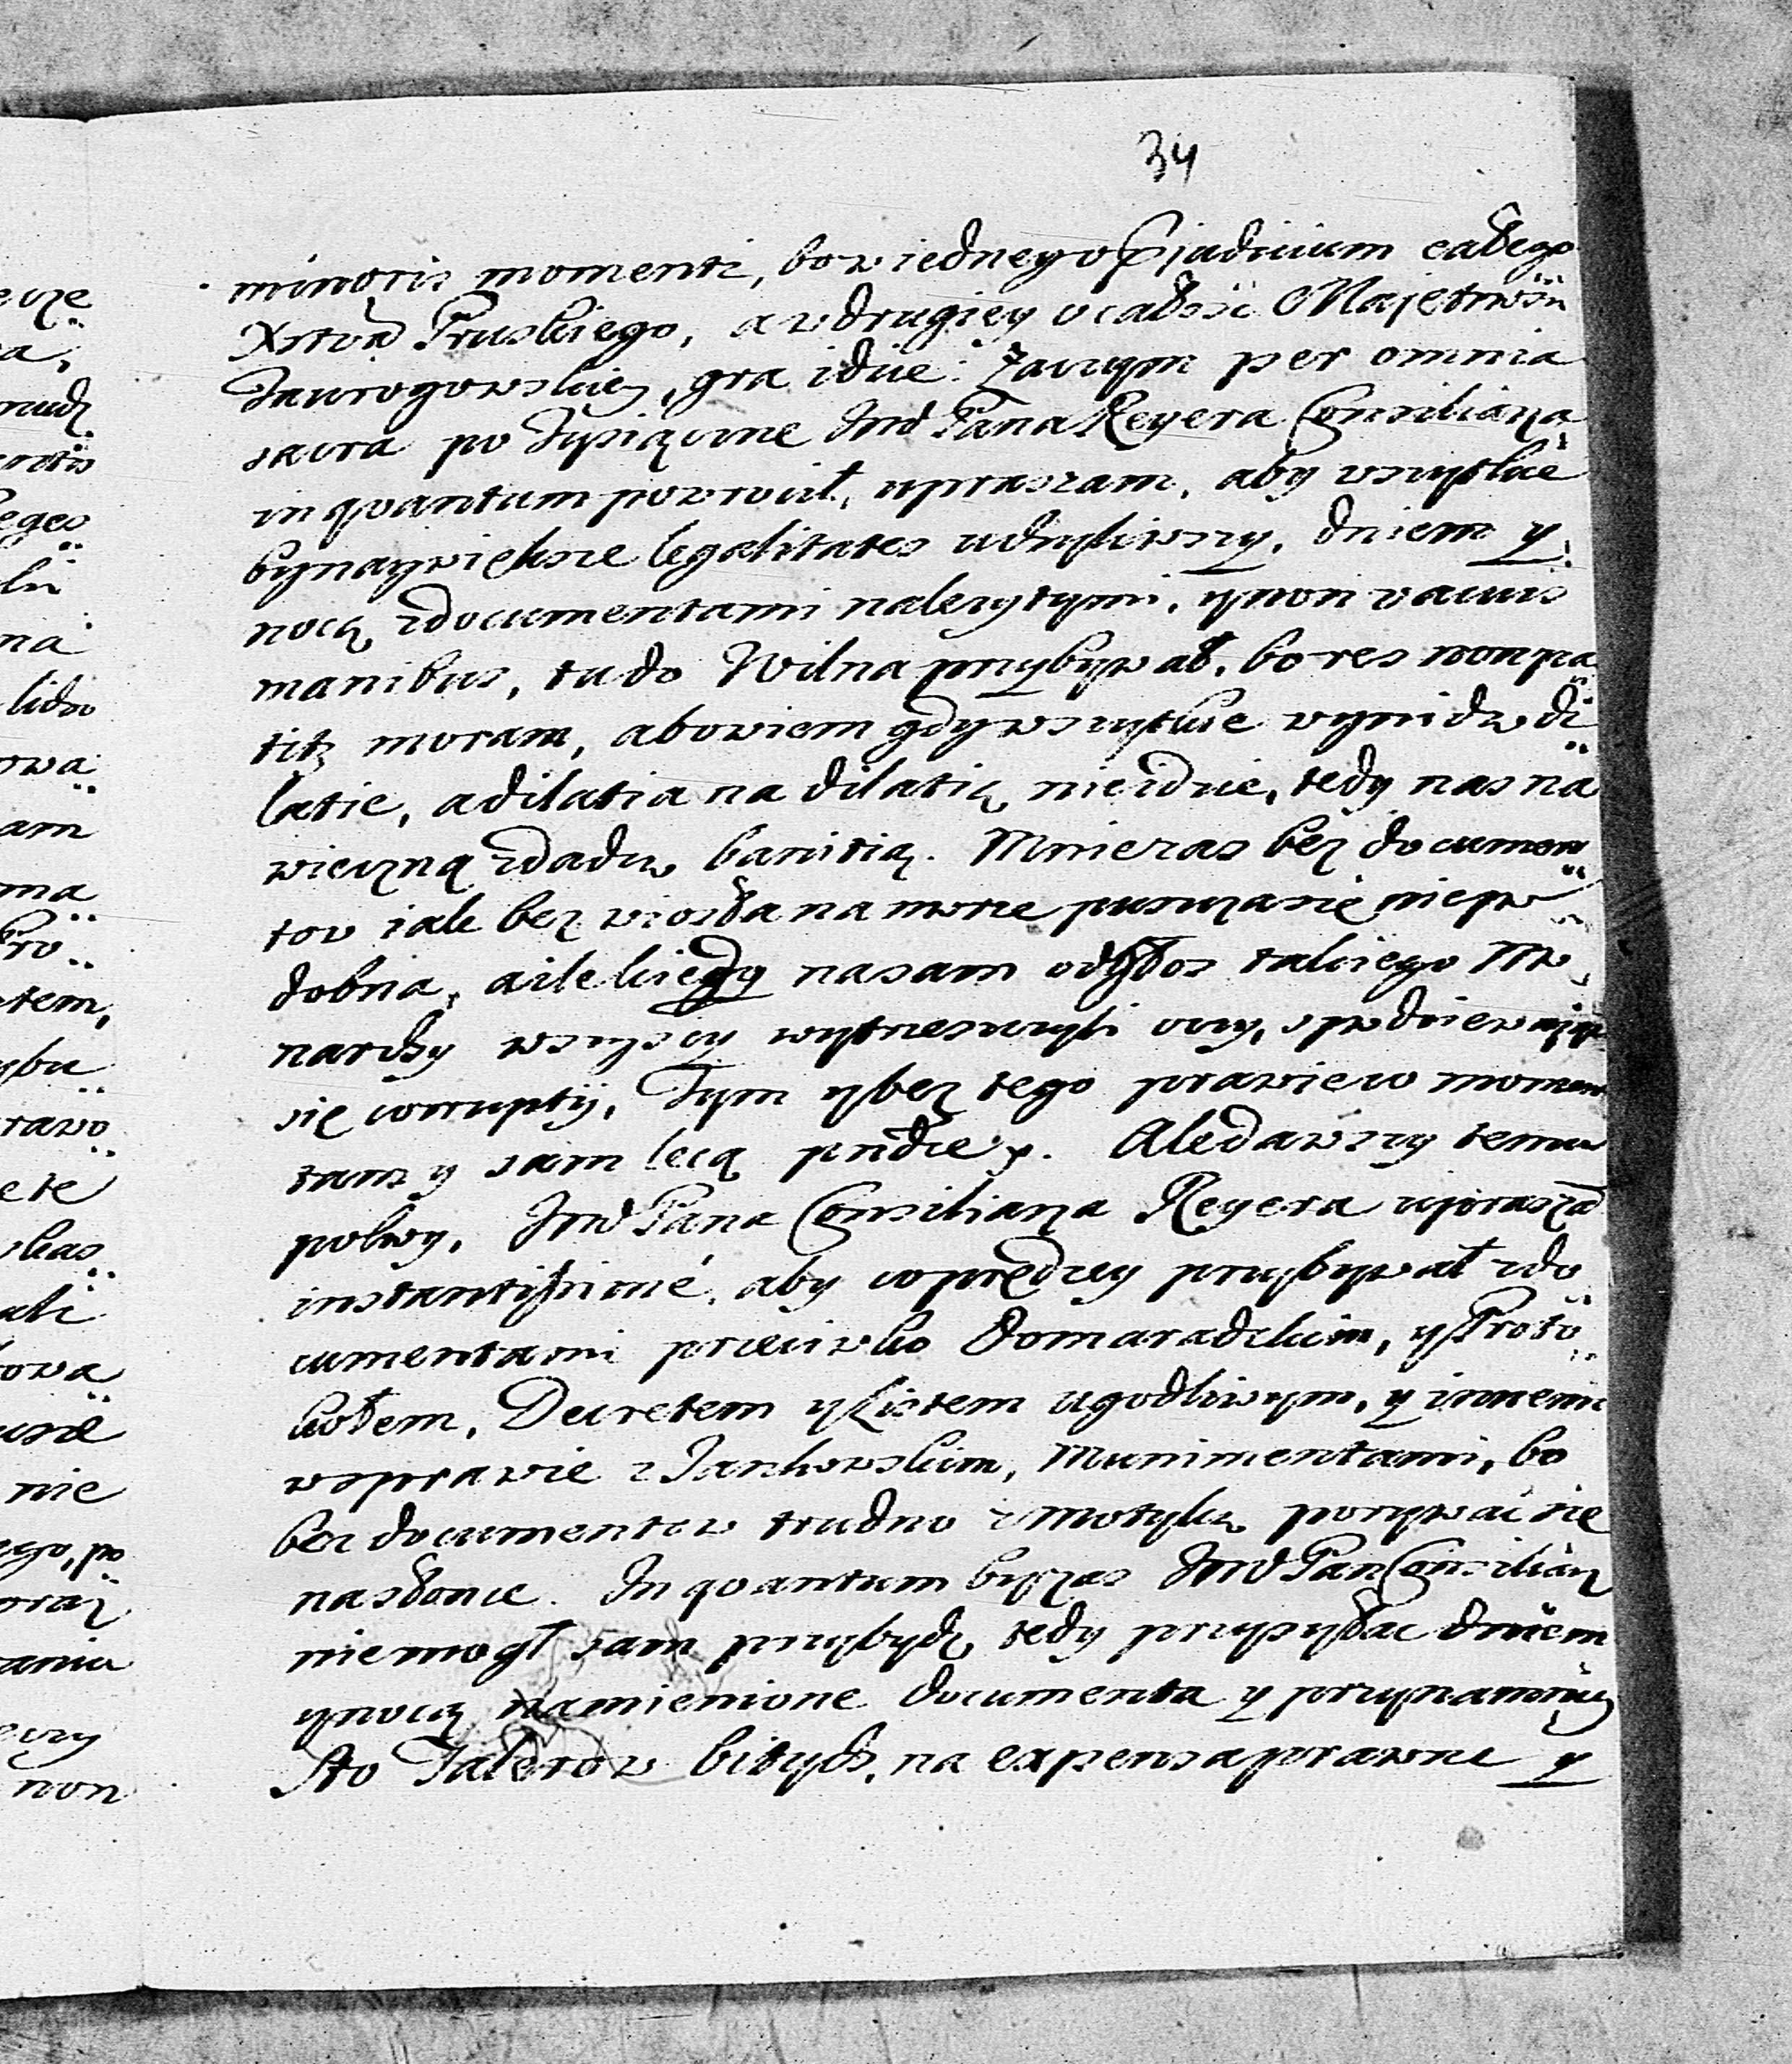 34
minoris momenti, bo w iednego prjudicium całego
Xstwa Pruskiego, a w drugiey o całość Majętnośći
Taurogowskiey, gra idzie. Zaczym per omnia
sacra po Tysiączne Jmć Pana Reyera Consiliarza
in quantum powrocił, upraszam, aby wszytkie
bynaywiększe legalitates uchyliwszy, dniem y
nocą z documentami należytymi, y non vacuis
manibus, tu do Wilna przybywał, bo res non pa
titr moram, abowiem gdy wszytkie wynidą di
latie, a dilatia na dilatią nieidzie, tedy nas na
wieczną zdadzą banitią. Mnie zas bez documen
tow iak bez wiosła na morze puszcza się niepo
dobna, a ile kiedy na sam odgłos takiego Mo
narchy wszyscy wytrzeszczyli oczy, spodziewając
się corruptij, Tym y bez tego prawie w momen
tam y sam lecą przodzey. Ale dawszy temu
pokoy, Jmć Pana Consiliarza Reyera upraszā
instantissimé, aby coprędzey przybywał z do
cumentami przeciwko Domaradzkim, y Proto
kołem, Decretem y Listem ugodliwym, y innemi
w sprawie z Jankowskim, Munimentami, bo
bez documentow trudno z motyką porywać się
na słonce. In quantum by zas Jmć Pan Consiliarz
niemogł sam przybydz, tedy przysyłac dniem
y nocą namienione documenta y przynamniey
Sto Talerow bitych, na expensa prawne y